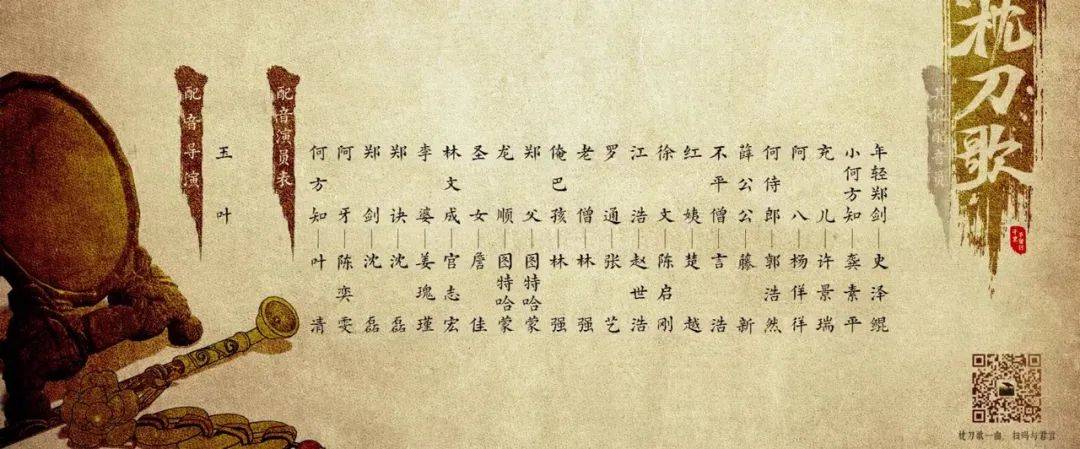 配音导演
王叶
配音演员表
何方知—叶清
阿牙—陈奕雯
郑剑—沈磊
郑诀—沈磊
李婆—姜瑰瑾
林文成—官志宏
圣女—詹佳
龙顺—图特哈蒙
郑父—图特哈蒙
俺巴孩—林强
老僧—林强
罗通—张艺
江浩—赵世浩
徐文—陈启刚
红姨—楚越
不平僧—言浩
薛公公—藤新
何侍郎—郭浩然
阿八—杨佯佯
充儿—许景瑞
小何方知—龚素平
年轻郑剑—史泽鲲
枕刀歌
枕刀歌一曲，扫码与君言